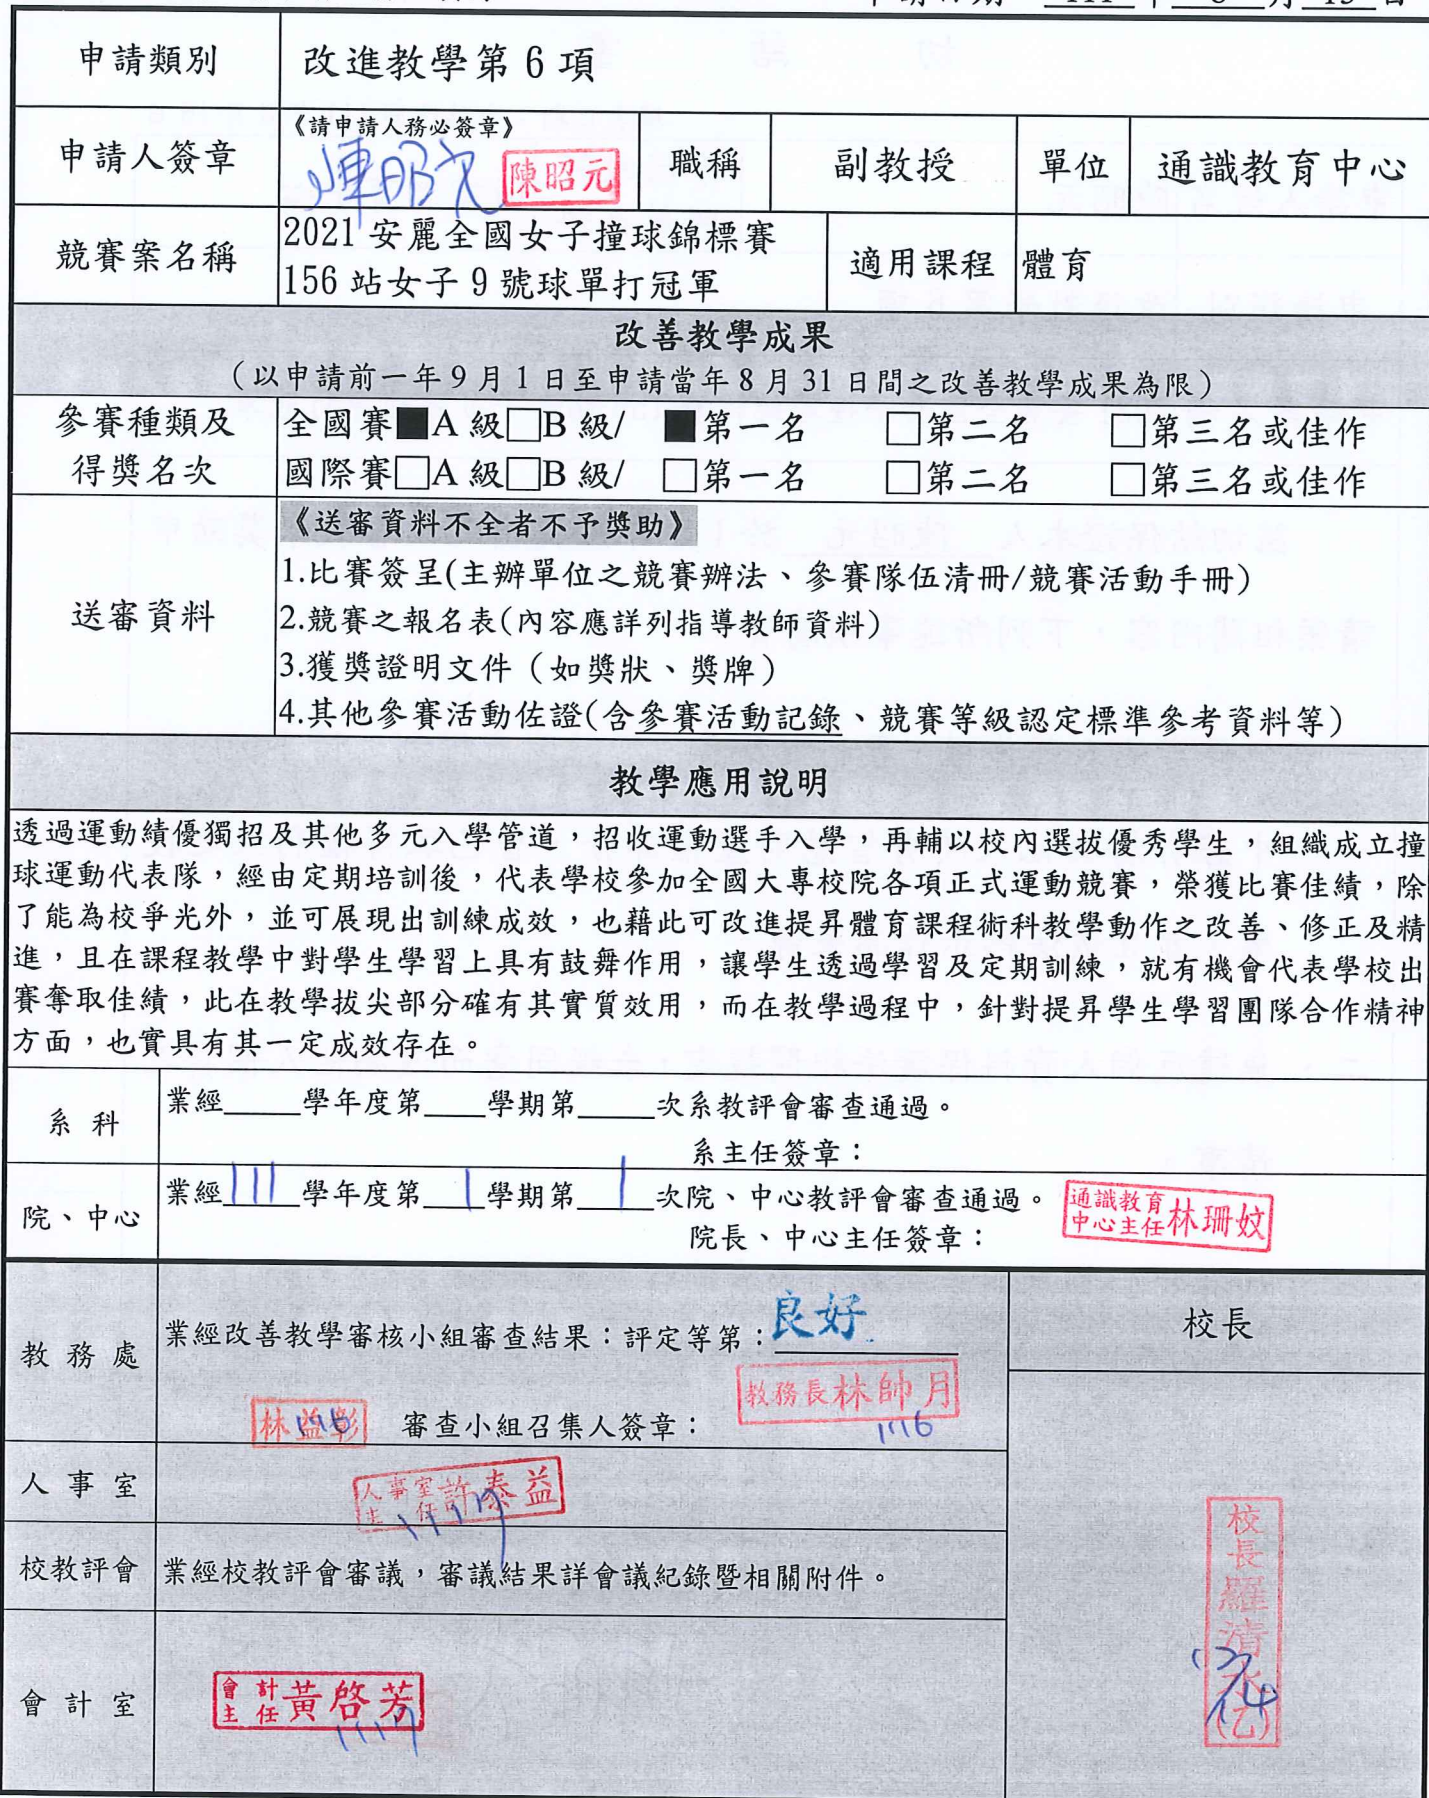 申請類別 改進教學第 6 項
申請人簽章 《請申請人務必簽章》 陳昭元 陳昭元 職稱 副教授 單位 通識教育中心
競賽案名稱 2021 安麗全國女子撞球錦標賽
156 站女子 9 號球單打冠軍 適用課程 體育
改善教學成果
（以申請前一年 9 月 1 日至申請當年 8 月 31 日間之改善教學成果為限）
參賽種類及
得獎名次
全國賽■A 級□B 級/ ■第一名 □第二名 □第三名或佳作
國際賽□A 級□B 級/ □第一名 □第二名 □第三名或佳作
送審資料
《送審資料不全者不予獎助》
1.比賽簽呈(主辦單位之競賽辦法、參賽隊伍清冊/競賽活動手冊)
2.競賽之報名表(內容應詳列指導教師資料)
3.獲獎證明文件（如獎狀、獎牌）
4.其他參賽活動佐證(含參賽活動記錄、競賽等級認定標準參考資料等)
教學應用說明
透過運動績優獨招及其他多元入學管道，招收運動選手入學，再輔以校內選拔優秀學生，組織成立撞
球運動代表隊，經由定期培訓後，代表學校參加全國大專校院各項正式運動競賽，榮獲比賽佳績，除
了能為校爭光外，並可展現出訓練成效，也藉此可改進提昇體育課程術科教學動作之改善、修正及精
進，且在課程教學中對學生學習上具有鼓舞作用，讓學生透過學習及定期訓練，就有機會代表學校出
賽奪取佳績，此在教學拔尖部分確有其實質效用，而在教學過程中，針對提昇學生學習團隊合作精神
方面，也實具有其一定成效存在。
系 科 業經_____學年度第____學期第_____次系教評會審查通過。
系主任簽章：
院、中心 業經111學年度第1學期第1次院、中心教評會審查通過。
院長、中心主任簽章：
通識教育
中心主任林珊妏
教務處 業經改善教學審核小組審查結果：評定等第：良好
林益彰 審查小組召集人簽章： 教務長林帥月
校長
人事室 人事室主任許泰益
校教評會 業經校教評會審議，審議結果詳會議紀錄暨相關附件。
會計室 會計主任黃啓芳
校長羅清水(乙)